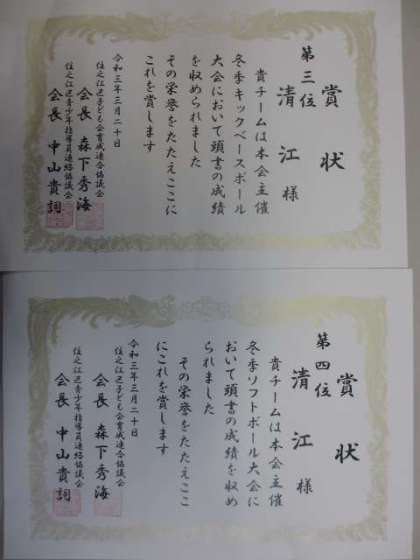 賞状
第三位
清江様
貴チームは本会主催
冬季キックベースボール
大会において頭書の成績
を収められました
その栄誉をたたえここに
これを賞します
令和三年三月二十日
住之江区子ども会育成連合協議会
会長 森下秀海
住之江区青少年指導員連絡協議会
会長 中山貴詞
賞状
第四位
清江様
貴チームは本会主催
冬季ソフトボール大会に
おいて頭書の成績を収め
られました
その栄誉をたたえここ
にこれを賞します
令和三年三月二十日
住之江区子ども会育成連合協議会
会長 森下秀海
住之江区青少年指導員連絡協議会
会長 中山貴詞